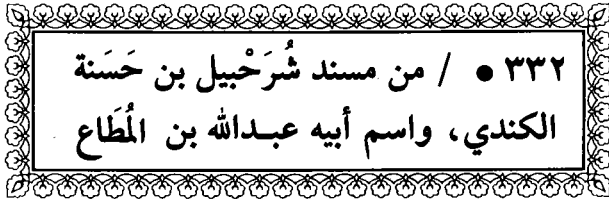 ٣٣٢ ● / من مسند شُرَحْبيل بن حَسَنة
الكندي، واسم أبيه عبدالله بن المُطَاع